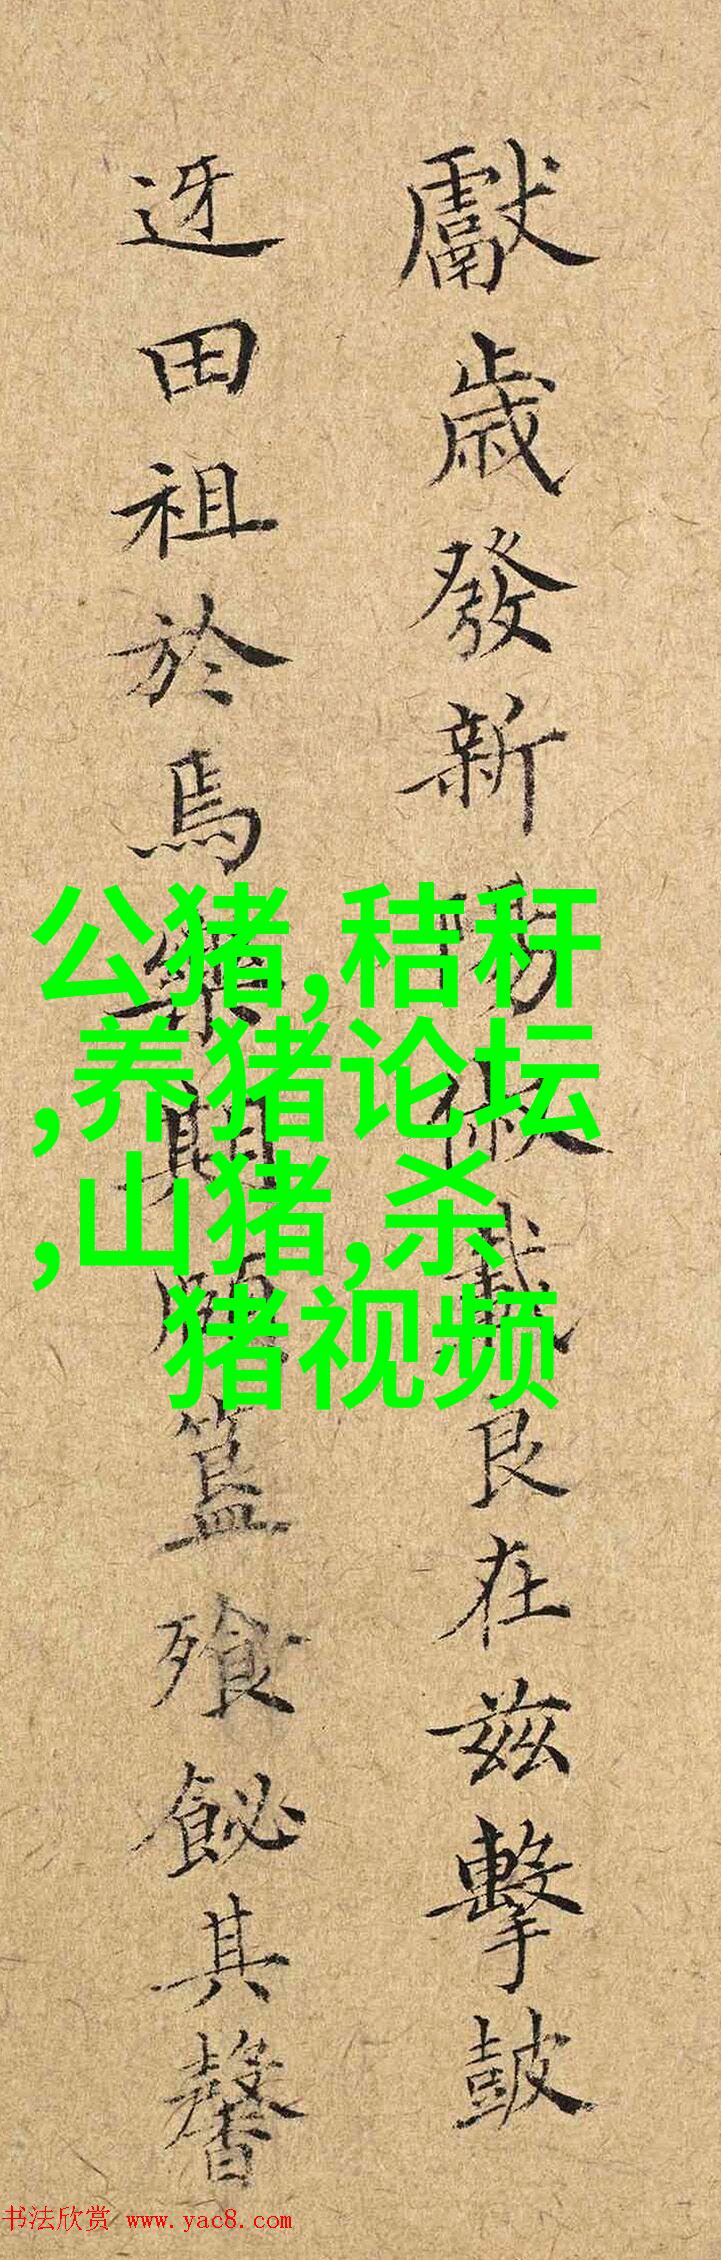 獻歲發新俶載良在茲擊鼓
迓田祖於焉樂期簋飱飶其馨
公猪,秸秆
,养猪论坛
,山猪,杀
猪视频
书法欣赏 www.yac8.com